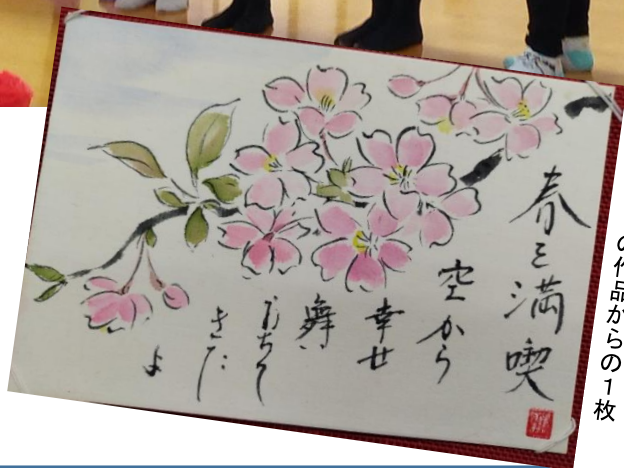 春を満喫
空から
幸せ
舞い
おちて
きた
よ
の作品からの1枚